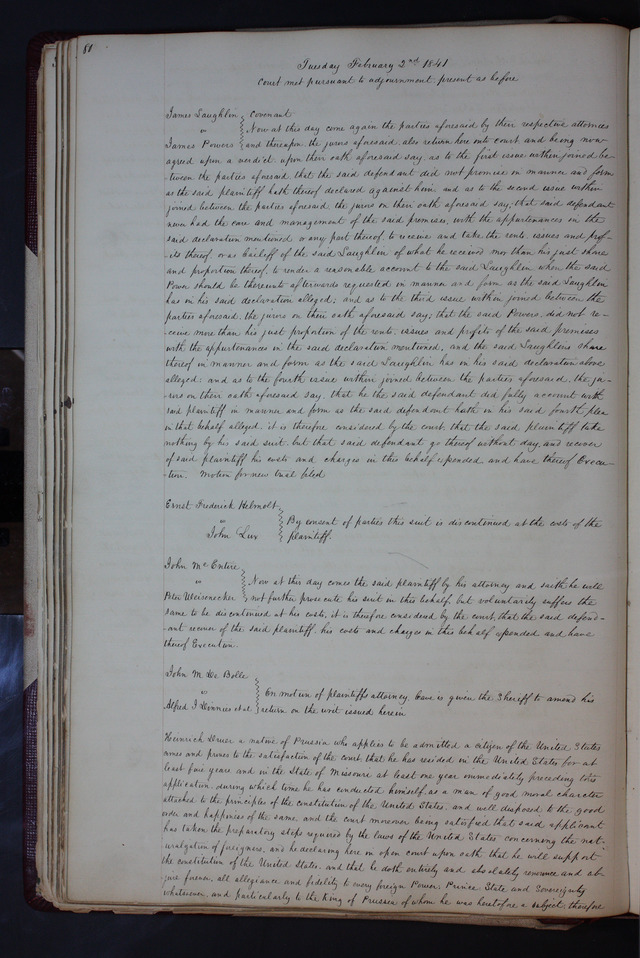 80
Tuesday February 2nd 1841
Court met pursuant to adjournment present as before
James Laughlin } Covenant
vs } Now at this day come again the parties aforesaid by their respective attornies
James Powers } and thereupon the jurors aforesaid also return here into court and being now
agreed upon a verdict upon their oath aforesaid say, as to the first issue within joined be-
-tween the parties aforesaid that the said defendant did not promise in manner and form
as the said plaintiff hath thereof declared against him and as to the second issue within
joined between the parties aforesaid the jurors on their oath aforesaid say, that said defendant
never had the care and management of the said premises, with the appurtenances in the
said declaration mentioned or any part thereof, to receive and take the rents, issues and prof-
-its thereof or as bailiff of the said Laughlin of what he received mor than his just share
and proportion thereof, to render a reasonable account to the said Laughlin when the said
Power should be thereunto afterwards requested in manner and form as the said Laughlin
has in his said declaration alleged; and as to the third issue within joined between the
parties aforesaid, the jurors on their oath aforesaid say; that the said Powers, did not re-
-ceive more than his just proportion of the rents, issues and profits of the said premises
with the appurtenances in the said declaration mentioned, and the said Laughlins share
thereof in manner and form as the said Laughlin has in his said declaration above
alleged: and as to the fourth issue within joined between the parties aforesaid, the ju-
-rors on their oath aforesaid say, that he the said defendant did fully account with
said plaintiff in manner and form as the said defendant hath in his said fourth plea
in that behalf alleged. it is therefore considered by the court, that the said plaintiff take
nothing by his said suit. but that said defendant go thereof without day, and recover
of said plaintiff his costs and charges in this behalf expended and have thereof Execu-
-tion. Motion for new trial filed
Ernst Frederick Helmolt }
vs } By consent of parties this suit is discontinued at the costs of the
John Lux } plaintiff.
John McEntire }
vs } Now at this day comes the said plaintiff by his attorney and saith he will
Peter Weisenecker } not further prosecute his suit in this behalf, but voluntarily suffers the
same to be discontinued at his costs, it is therefore considered by the court, that the said defend-
-ant recover of the said plaintiff, his costs and charges in this behalf expended and have
thereof Execution.
John M De Bolle }
vs } On motion of plaintiffs attorney, leave is given the Sheriff to amend his
Alfred J et al } return on the writ issued herein
Heinrich a native of Prussia who applies to be admitted a citizen of the United States
comes and proves to the satisfaction of the court that he has resided in the United States for at
least five years and in the State of Missouri at least one year immediately preceding this
application, during which time he has conducted himself, as a man of good moral character
attached to the principles of the constitution of the United States, and well disposed to the good
order and happiness of the same, and the court moreover being satisfied that said applicant
has taken the preparatory steps required by the laws of the United States concerning the nat-
uralization of foreigners, and he declaring here in open court upon oath that he will support
the constitution of the United States, and that he doth entirely and absolutely renounce and ab-
-jure forever, all allegiance and fidelity to every foreign Power, Prince State and Sovereignty
whatsoever, and particularly to the King of Prussia of whom he was heretofore a subject, therefore